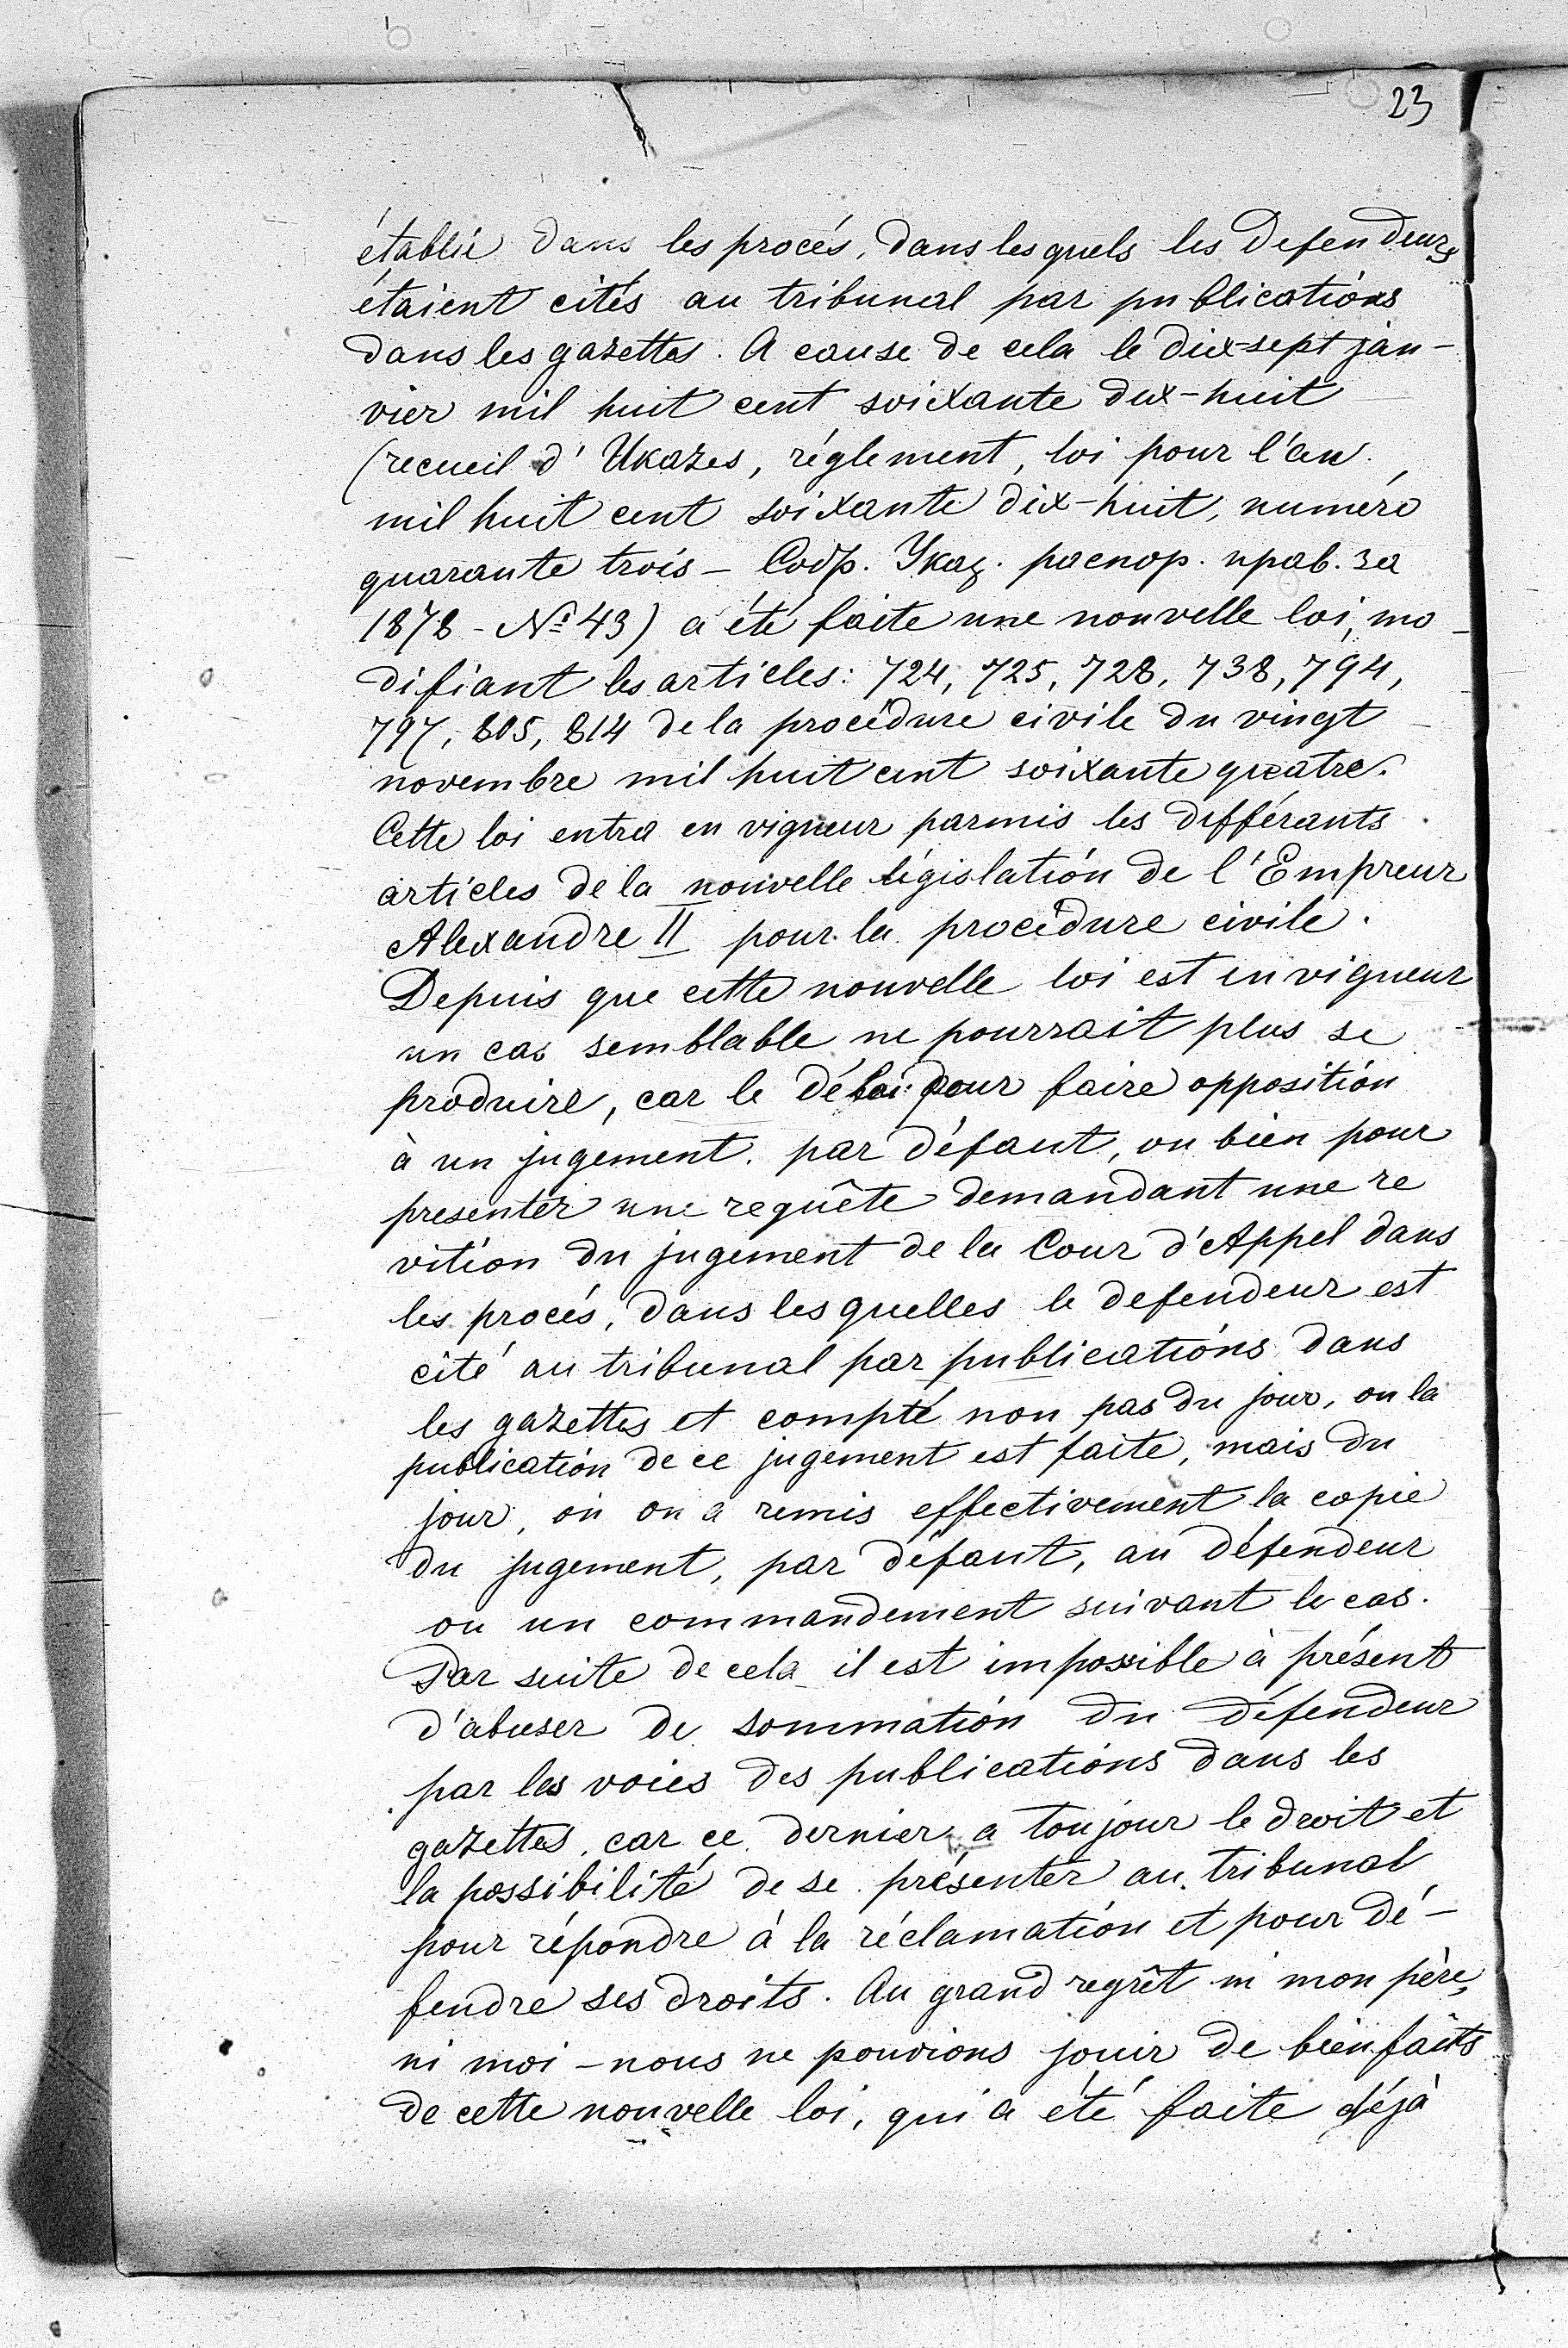 23
établie dans les procés, dans les quels les Defendeurs
étaient cités au tribunal par publications
dans les gazettes. A cause de cela le dix-sept jan-
vier mil huit cent soixante dix-huit
(recueil d'Ukazes, réglement, loi pour l'an
mil huit cent soixante dix-huit, numéro
quarante trois – Собр. Указ. распор. прав. за
1878 - № 43) a été faite une nouvelle loi, mo-
difiant les articles: 724, 725, 728, 738, 794,
797, 805, 814 de la procédure civile du vingt
novembre mil huit cent soixante quatre.
Cette loi entra en vigueur parmis les différants
articles de la nouvelle législation de l'Empreur
Alexandre II pour la procédure civile.
Depuis que cette nouvelle loi est en vigueur
un cas semblable ne pourrait plus se
produire, car le délai pour faire opposition
à un jugement par défaut, ou bien pour
presenter une requête demandant une re
vition du jugement de la Cour d'Appel dans
les procés, dans les quelles le defendeur est
cité au tribunal par publications dans
les gazettes et compté non pas du jour, ou la
publication de ce jugement est faite, mais du
jour, où on a remis effectivement la copie
du jugement, par défaut, au défendeur
ou un commandement suivant le cas.
Par suite de cela il est impossible à présent
d'abuser de sommation du défendeur
par les voies des publications dans les
gazettes, car ce dernier a toujour le droit et
la possibilité de se présenter au tribunal
pour répondre à la réclamation et pour dé-
fendre ses droits. Au grand regrêt ni mon père,
ni moi – nous ne pouvions jouir de bienfaits
de cette nouvelle loi, qui a été faite déjà